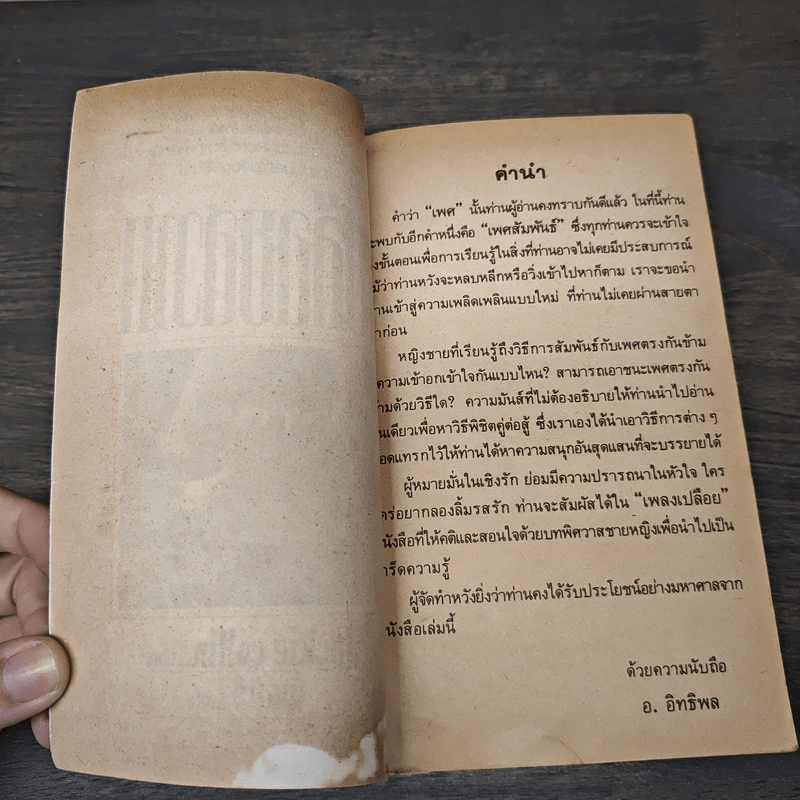 คำนำ
คำว่า “เพศ” นั้นท่านผู้อ่านคงทราบกันดีแล้ว ในที่นี้ท่าน
ะพบกับอีกคำหนึ่งคือ “เพศสัมพันธ์” ซึ่งทุกท่านควรจะเข้าใจ
งขั้นตอนเพื่อการเรียนรู้ในสิ่งที่ท่านอาจไม่เคยมีประสบการณ์
ม้ว่าท่านหวังจะหลบหลีกหรือวิ่งเข้าไปหาก็ตาม เราจะขอนำ
านเข้าสู่ความเพลิดเพลินแบบใหม่ ที่ท่านไม่เคยผ่านสายตา
าก่อน
หญิงชายที่เรียนรู้ถึงวิธีการสัมพันธ์กับเพศตรงกันข้าม
ความเข้าอกเข้าใจกันแบบไหน? สามารถเอาชนะเพศตรงกัน
้ามด้วยวิธีใด? ความมันส์ที่ไม่ต้องอธิบายให้ท่านนำไปอ่าน
นเดียวเพื่อหาวิธีพิชิตคู่ต่อสู้ ซึ่งเราเองได้นำเอาวิธีการต่าง ๆ
อดแทรกไว้ให้ท่านได้หาความสนุกอันสุดแสนที่จะบรรยายได้
ผู้หมายมั่นในเชิงรัก ย่อมมีความปรารถนาในหัวใจ ใคร
คร่อยากลองลิ้มรสรัก ท่านจะสัมผัสได้ใน “เพลงเปลือย”
นังสือที่ให้คติและสอนใจด้วยบทพิศวาสชายหญิงเพื่อนำไปเป็น
าร็ดความรู้
ผู้จัดทำหวังยิ่งว่าท่านคงได้รับประโยชน์อย่างมหาศาลจาก
นังสือเล่มนี้
ด้วยความนับถือ
อ. อิทธิพล